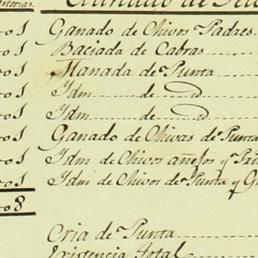 Ganado de Chivos Padres
1 Baciada de Cabras
1 Manada de Punta
1 Idm de D
1 Idm de D
1 Ganado de Chivas de Punta
1 Idm de Chivos añejos y
1 Idm de Chivos de Punta y
8
Cria de Punta
Existencia Total